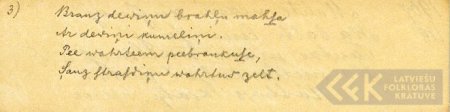 3) Brauz deviņi brahļu mahsa
Ar deviņi kumeliņi.
Pee wahrteem peebraukuse,
Sauz strasdiņu wahrtus zelt.
LATVIEŠU
FOLKLORAS
KRATUVE